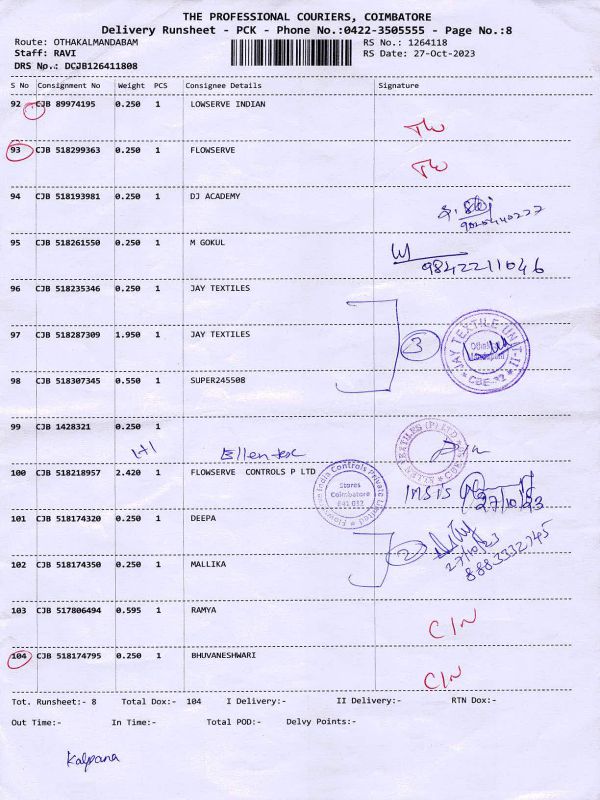 THE PROFESSIONAL COURIERS, COIMBATORE
Delivery Runsheet - PCK - Phone No.:0422-3505555 - Page No.:8
Route: OTHAKALMANDABAM RS No.: 1264118
Staff: RAVI RS Date: 27-Oct-2023
DRS No.: DCJB126411808
S No Consignment No Weight PCS Consignee Details Signature
92 CJB 89974195 0.250 1 LOWSERVE INDIAN
93 CJB 518299363 0.250 1 FLOWSERVE
94 CJB 518193981 0.250 1 DJ ACADEMY
95 CJB 518261550 0.250 1 M GOKUL
9842211046
96 CJB 518235346 0.250 1 JAY TEXTILES
97 CJB 518287309 1.950 1 JAY TEXTILES
3
JAY TEXTILE UNIT-II
CBE-32
98 CJB 518307345 0.550 1 SUPER245508
99 CJB 1428321 0.250 1
1+1
100 CJB 518218957 2.420 1 FLOWSERVE CONTROLS P LTD
Flowserve India Controls Private Limited
Stores
Coimbatore
641 032
27/10/23
101 CJB 518174320 0.250 1 DEEPA
2
27/10/23
8883332745
102 CJB 518174350 0.250 1 MALLIKA
103 CJB 517806494 0.595 1 RAMYA
C/N
104 CJB 518174795 0.250 1 BHUVANESHWARI
C/N
Tot. Runsheet:- 8 Total Dox:- 104 I Delivery:- II Delivery:- RTN Dox:-
Out Time:- In Time:- Total POD:- Delvy Points:-
Kalpana